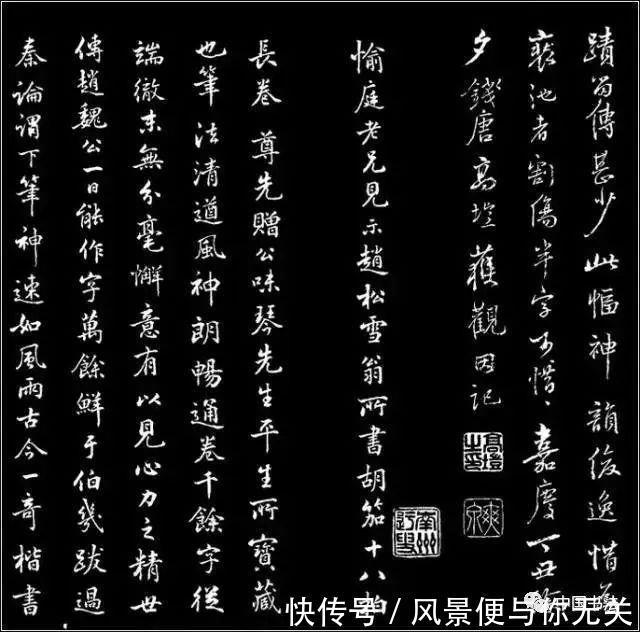 蹟留傳甚少此幅神韻俊逸惜為
裝池者割傷半字可惜〻嘉慶丁丑
夕錢唐高塏獲觀因記
高塏
之印
爽泉
愉庭老兄見示趙松雪翁所書胡笳十八拍
長卷尊先贈公味琴先生平生所寶藏
也筆法清遒風神朗暢通卷千餘字從
端徹末無分毫懈意有以見心力之精世
傳趙魏公一日能作字萬餘鮮于伯幾跋過
秦論謂下筆神速如風雨古今一奇楷書
中国书法
快传号/风景便与你无关